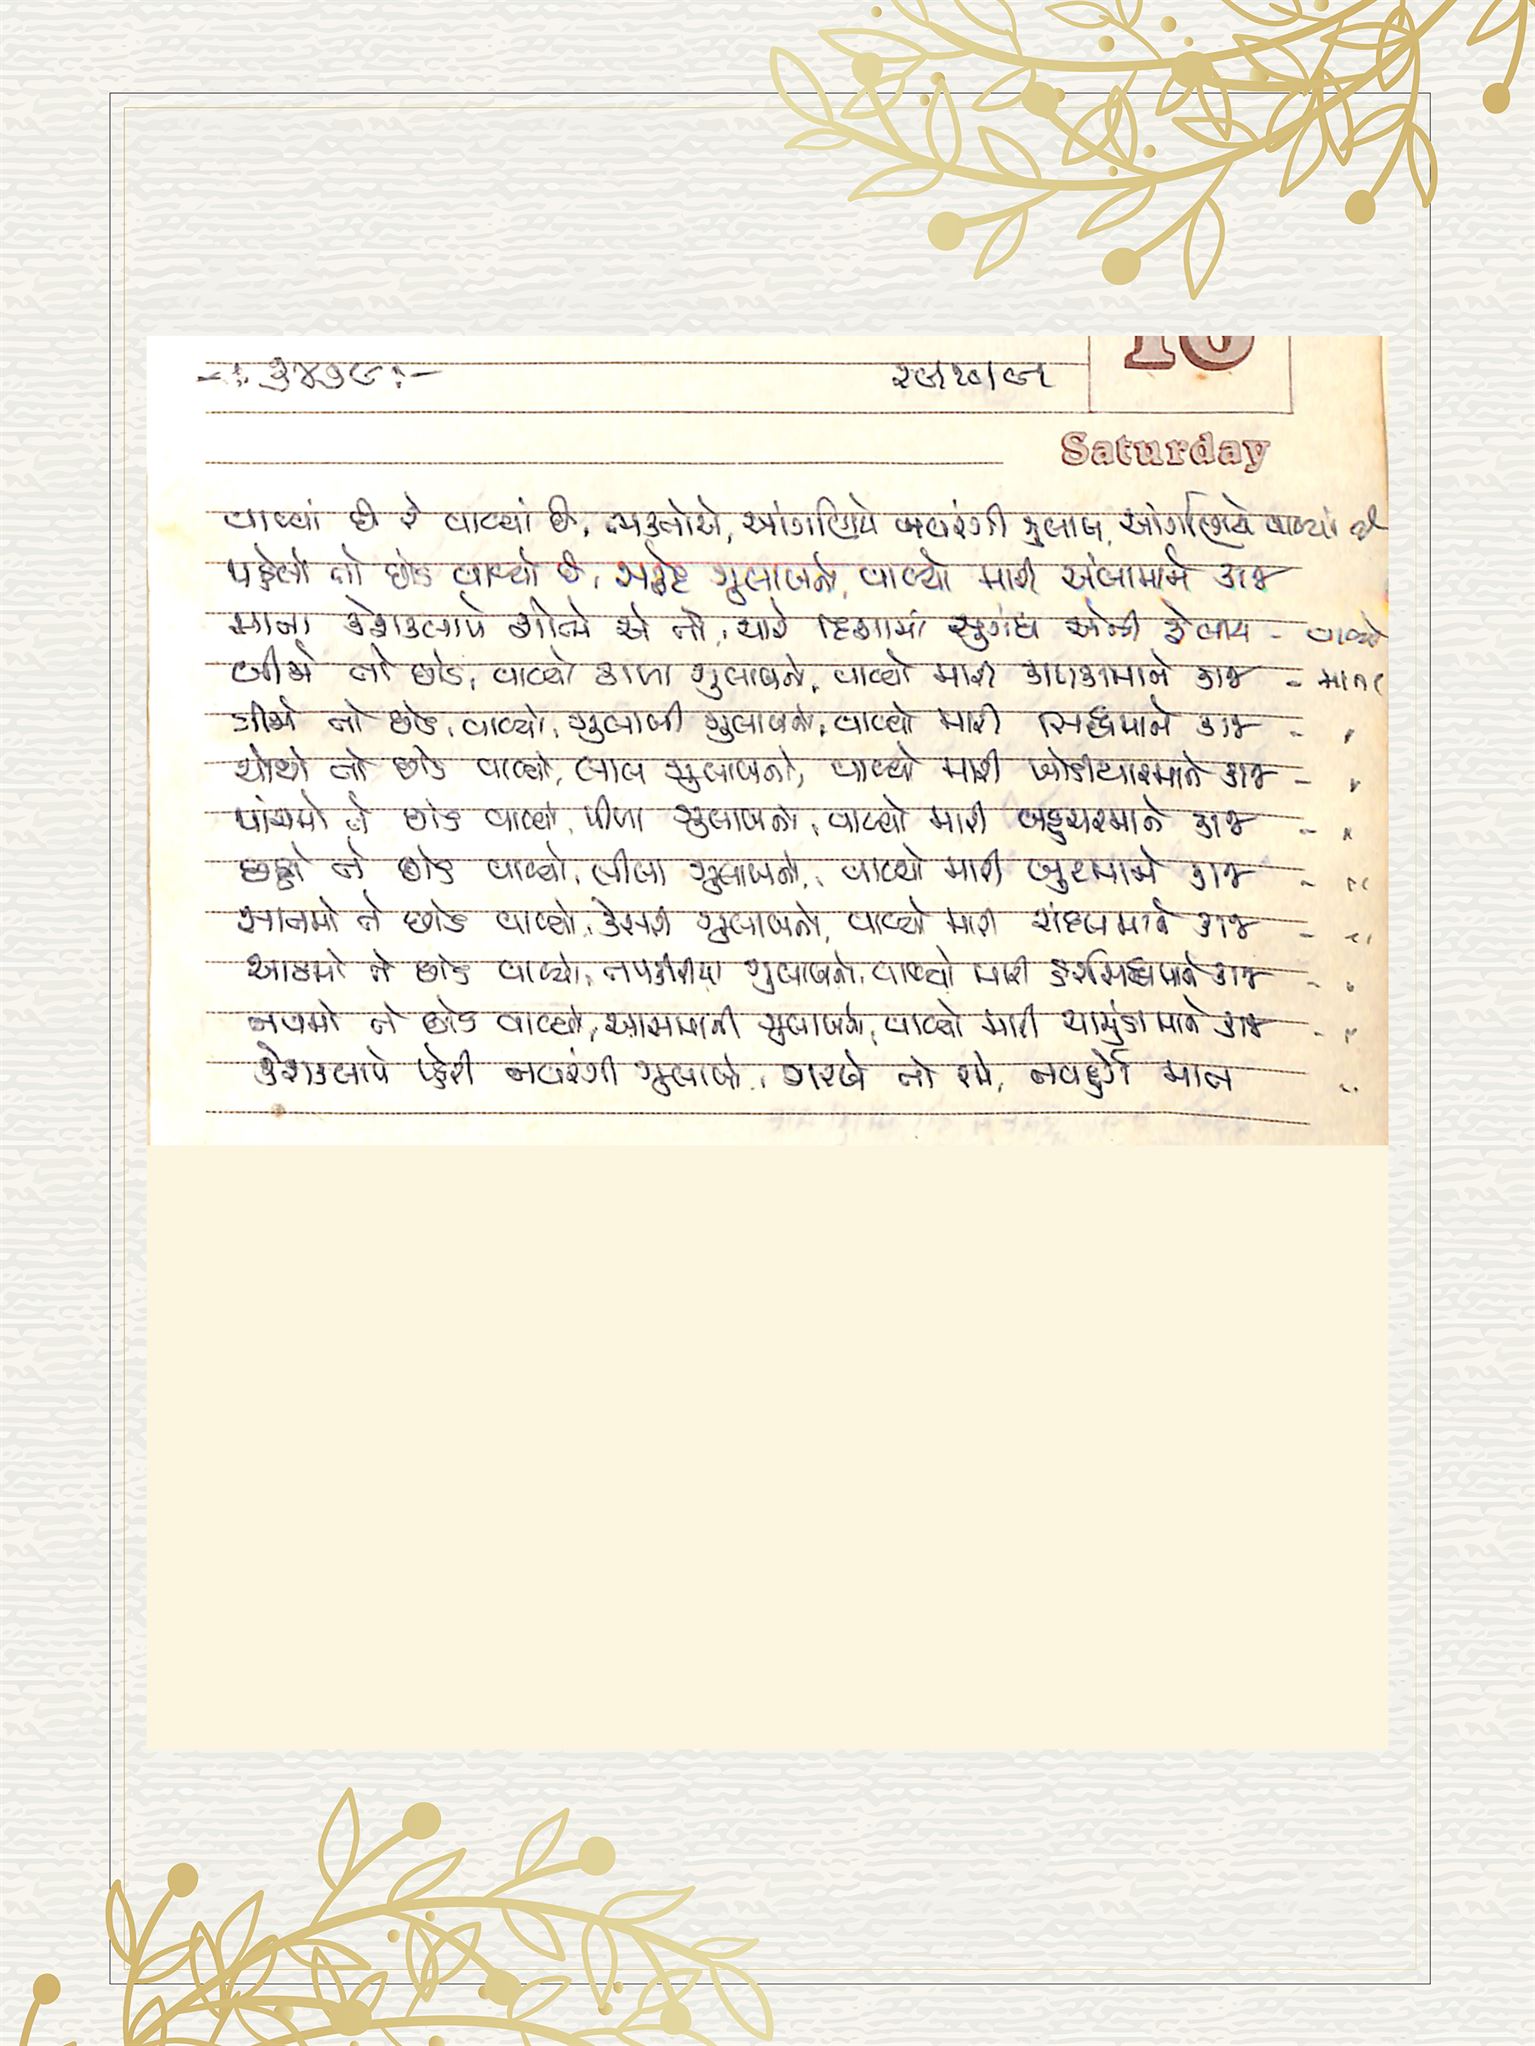 -: ૩૪૩૯ :- ૨૯/૧૦/૯૧
10
Saturday
વાવ્યાં છે રે વાવ્યાં છે, આંગણિયે નવરંગી ગુલાબ, આંગણિયે વાવ્યાં છે
પહેલો તો છોડ વાવ્યો છે, સફેદ ગુલાબનો, વાવ્યો મારી અંબામાને કાજ
માના કેશકલાપે શોભે એ તો, ચારે દિશામાં સુગંધ એની ફેલાય - વાવ્યો
બીજો તો છોડ, વાવ્યો કાળા ગુલાબનો, વાવ્યો મારી કાળકામાને કાજ - માના
ત્રીજો તો છોડ, વાવ્યો, ગુલાબી ગુલાબનો, વાવ્યો મારી સિદ્ધિમાને કાજ - "
ચોથો તો છોડ વાવ્યો, લાલ ગુલાબનો, વાવ્યો મારી ખોડીયારમાને કાજ - "
પાંચમો તે છોડ વાવ્યો, પીળા ગુલાબનો, વાવ્યો મારી બહુચરમાને કાજ - "
છઠ્ઠો તે છોડ વાવ્યો, લીલા ગુલાબનો, વાવ્યો મારી બુટમાને કાજ - "
સાતમો તે છોડ વાવ્યો, કેસરી ગુલાબનો, વાવ્યો મારી રાંદલમાને કાજ - "
આઠમો તે છોડ વાવ્યો, ગુલાબનો, વાવ્યો મારી હરસિદ્ધમાને કાજ - "
નવમો તે છોડ વાવ્યો, આસમાની ગુલાબનો, વાવ્યો મારી ચામુંડામાને કાજ - "
કેશકલાપે નવરંગી ગુલાબો, ગરબે તો રમે, નવદુર્ગા માત "